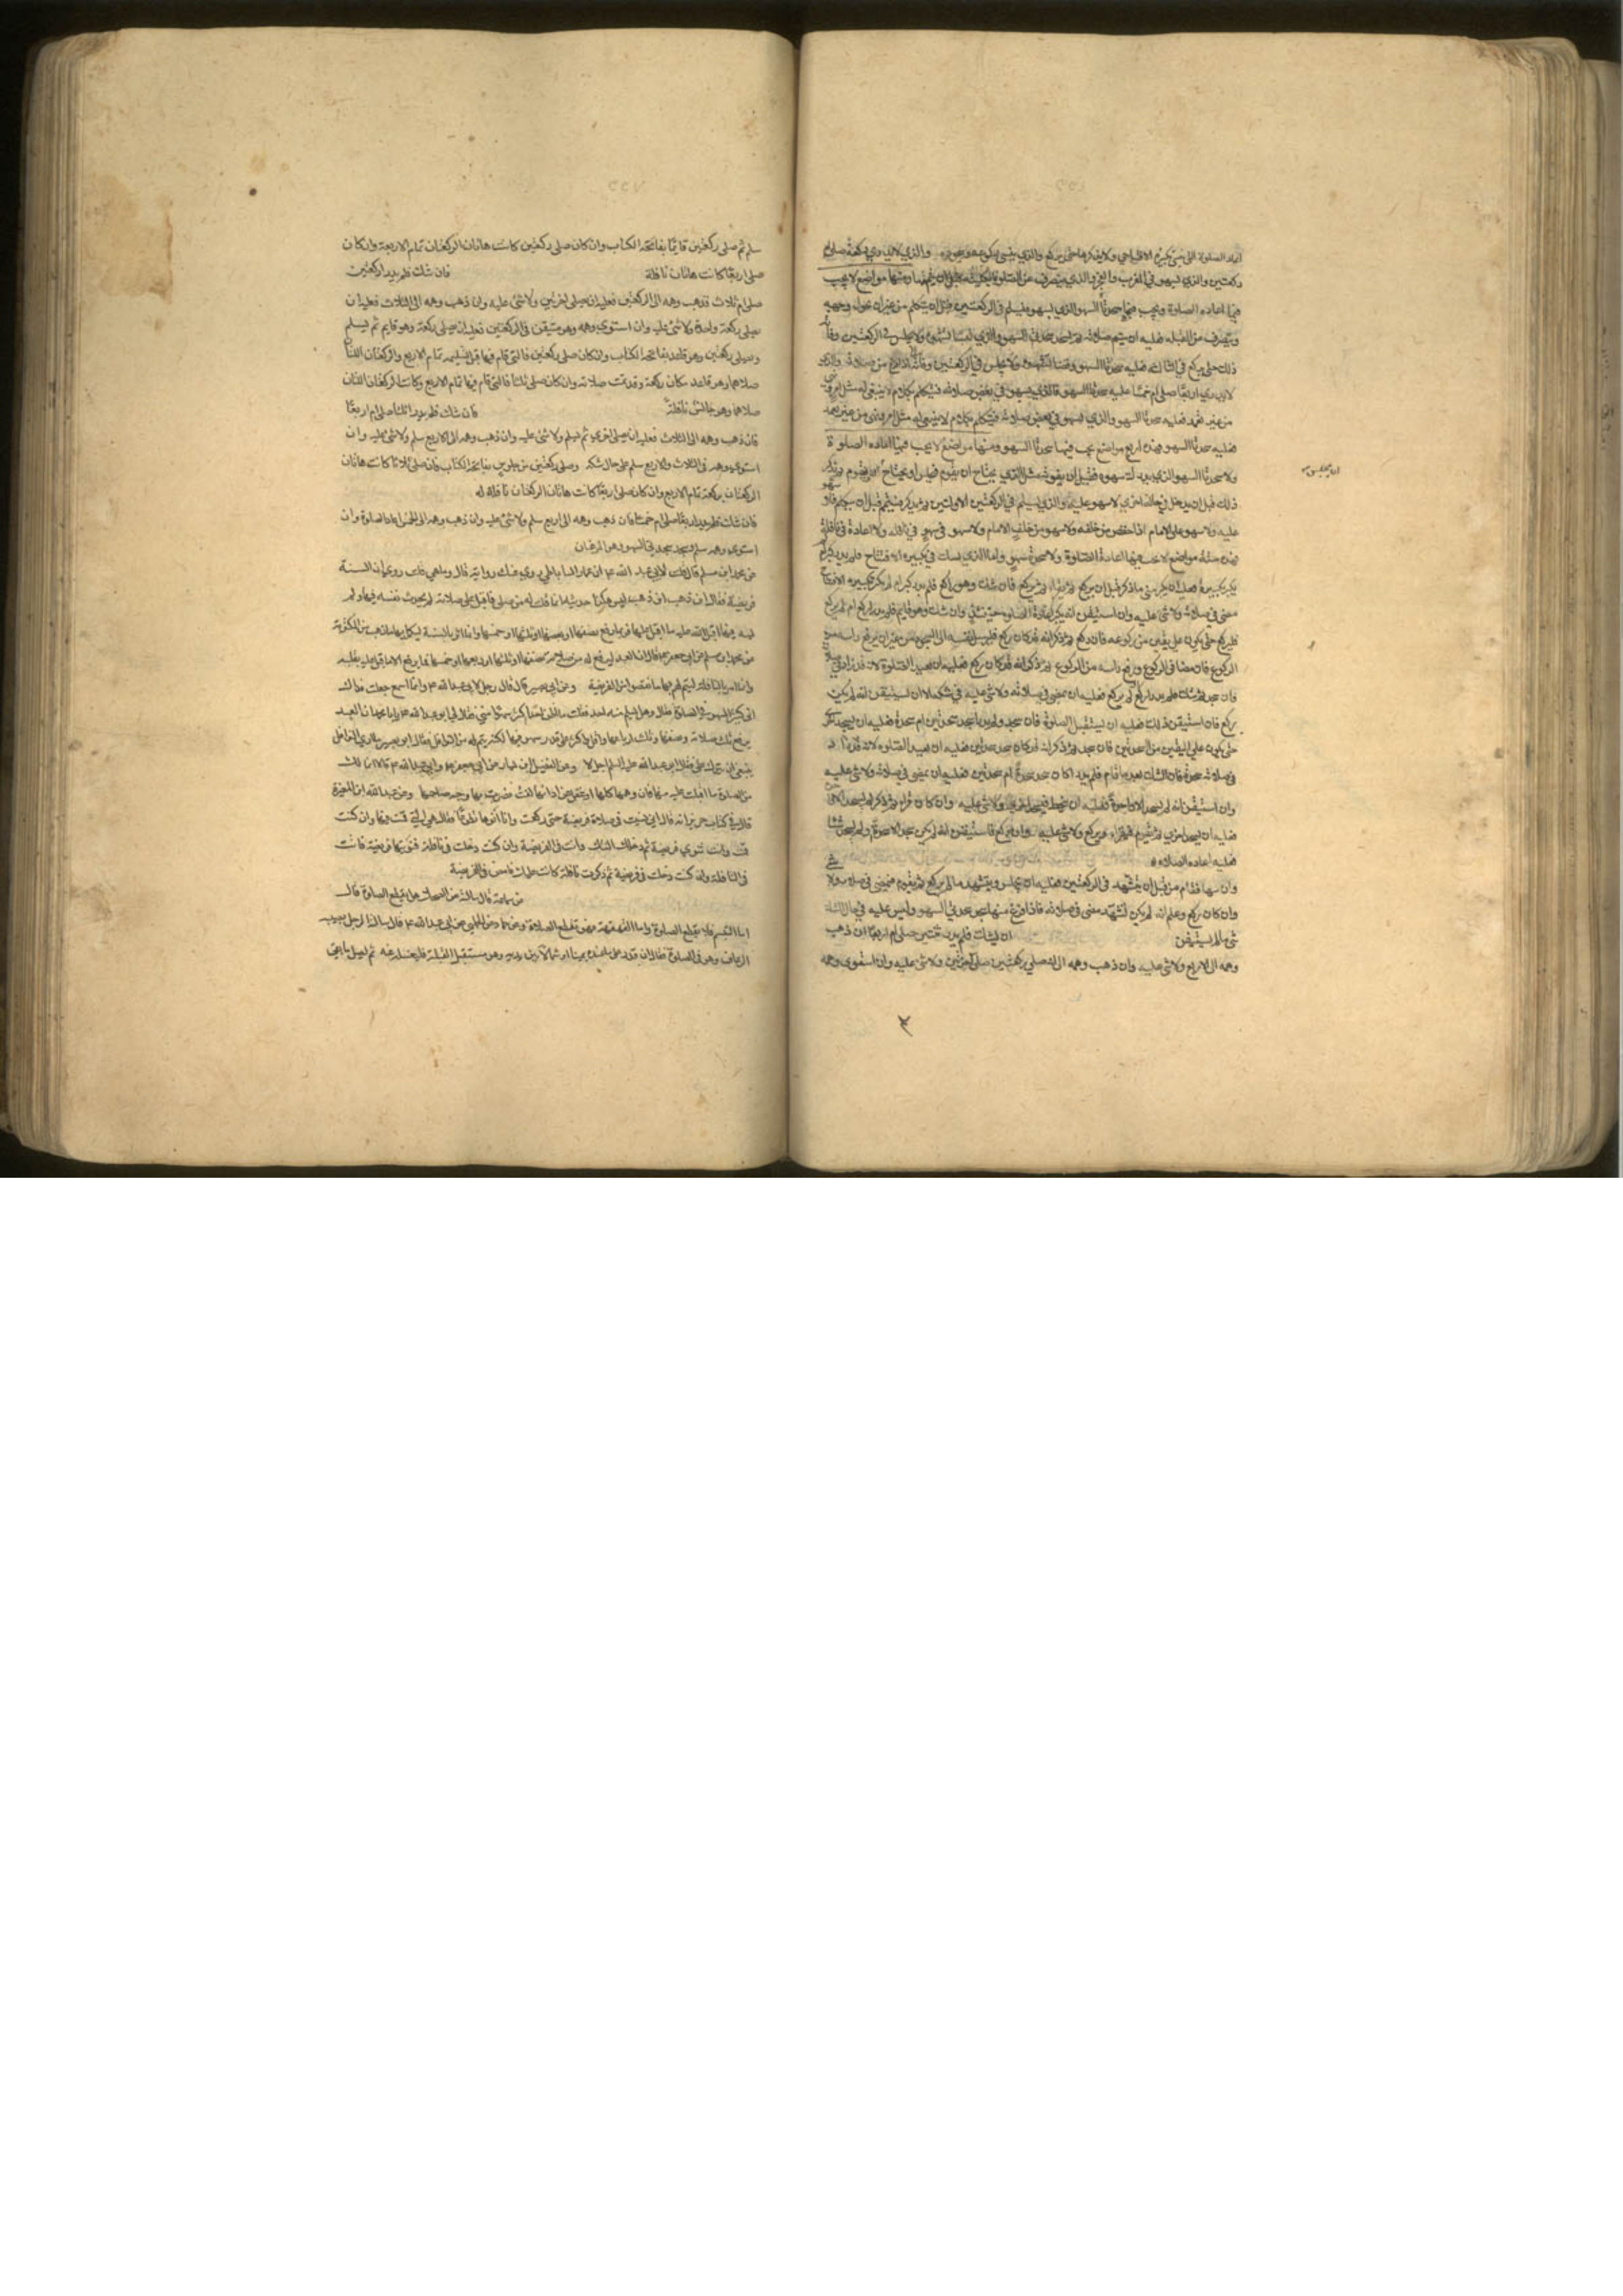 اعاد الصلوة الذي ينسى تكبيرة الافتتاح ولا يذكرها حتى يركع والذي ينسى ركوعه وسجوده والذي لا يدري ركعة صلى ام
ركعتين والذي يسهو في المغرب والفجر والذي ينصرف عن الصلوة بكليته قبل ان يتمها ومنها مواضع لا يجب
فيها اعادة الصلوة ويجب فيها سجدتا السهو الذي يسهو فيسلم في الركعتين ثم يتكلم من غير ان يحول وجهه
وينصرف عن القبلة فعليه ان يتم صلاته ثم يسجد سجدتي السهو والذي ينسا تشهده ولا يجلس في الركعتين وفاته
ذلك حتى يركع في الثالثة فعليه سجدتا السهو وقضا تشهده
لا يدري اربعا صلى ام خمسا عليه سجدتا السهو والذي يسهو في بعض صلاته فيتكلم بكلام لا ينبغي له مثل امر ونهي
من غير تعمد فعليه سجدتا السهو والذي يسهو في بعض صلاته فيتكلم بكلام لا ينبغي له مثل امر ونهي من غير تعمد
فعليه سجدتا السهو فهذه اربع مواضع يجب فيها سجدتا السهو ومنها مواضع لا يجب فيها اعادة الصلوة
ولا سجدتا السهو الذي يدرك سهوه قبل ان يفوته مثل الذي يحتاج ان يقوم فيجلس او يحتاج ان يقوم ثم يذكر
ان يجلس
ذلك قبل ان يدخل في حالة اخرى لا سهو عليه والذي يسلم في الركعتين الاولتين ثم يذكر فيتم قبل ان يتكلم فلا سهو
عليه ولا سهو على الامام اذا حفظ من خلفه ولا سهو من خلف الامام ولا سهو في سهو ولا في نافلة ولا اعادة في نافلة
فهذه ستة مواضع لا يجب فيها اعادة الصلوة ولا سجدة سهو واما الذي يشك في تكبيرة الافتتاح فلم يدر كبر ام لم
يكبر فعليه ان يكبر متى ما ذكر قبل ان يركع ثم يقرا ثم يركع فان شك وهو راكع فلم يدر كبر ام لم يكبر تكبيرة الافتتاح
مضى في صلاته ولا شى عليه وان استيقن انه لم يكبر اعاد الصلوة حينئذ وان شك وهو قايم فلم يدر اركع ام لم يركع
فليركع حتى يكون على يقين من ركوعه فان ركع ثم ذكر انه قد كان ركع فليرسل نفسه الى السجود من غير ان يرفع راسه من
الركوع فان مضا في الركوع ورفع راسه من الركوع ثم ذكر انه قد كان ركع فعليه ان يعيد الصلوة لانه قد زاد في
فان سجد ثم شك فلم يدر اركع ام لم يركع فعليه ان يمضى في صلاته ولا شى عليه في شكه الا ان يستيقن انه لم يكن
ركع فان استيقن ذلك فعليه ان يستقبل الصلوة فان سجد ولم يدر اسجد سجدتين ام سجدة فعليه ان يسجد اخرى
حتى يكون على اليقين من السجدتين فان سجد ثم ذكر انه قد كان سجد سجدتين فعليه ان يعيد الصلوة لانه قد زاد
في صلاته سجدة فان شك بعد ما قام فلم يدر اكان سجد سجدة ام سجدتين فعليه ان يمضى في صلاته ولا شى عليه
وان استيقن انه لم يسجد الا واحدة فعليه ان ينحط فيسجد اخرى ولا شى عليه وان كان قرا ثم ذكر انه لم يسجد الا واحدة
فعليه ان يسجد اخرى ثم يقوم فيقرا ويركع ولا شى عليه وان ركع فاستيقن انه لم يكن سجد الا سجدة او لم يسجد شيئا
فعليه اعادة الصلاة
وان سها فقام من قبل ان يتشهد في الركعتين فعليه ان يجلس ويتشهد ما لم يركع ثم يقوم فيمضي في صلاته ولا شى
وان كان ركع وعلم انه لم يكن تشهد مضى في صلاته فاذا فرغ منها سجد سجدتي السهو وليس عليه في حال الشك
شى ما لم يستيقن ان شك فلم يدر اثنتين صلى ام اربعا ان ذهب
وهمه الى الاربع ولا شى عليه وان ذهب وهمه الى انه صلى ركعتين صلى اخريين ولا شى عليه وان استوى وهمه
سلم ثم صلى ركعتين قايما بفاتحة الكتاب وان كان صلى ركعتين كانت هاتان الركعتان تمام الاربعة وان كان
صلى اربعا كانت هاتان نافلة فان شك فلم يدر اركعتين
صلى ام ثلاث فذهب وهمه الى الركعتين فعليه ان يصلى اخريتين ولا شى عليه وان ذهب وهمه الى الثلاث فعليه ان
يصلى ركعة واحدة ولا شى عليه وان استوى وهمه وهو متيقن في الركعتين فعليه ان يصلى ركعة وهو قايم ثم يسلم
ويصلى ركعتين وهو قاعد بفاتحة الكتاب وان كان صلى ركعتين فالتي قام فيها قبل تسليمه تمام الاربع والركعتان اللتان
صلاهما وهو قاعد مكان ركعة وقد تمت صلاته وان كان صلى ثلثا فالتي قام فيها تمام الاربع وكانت الركعتان اللتان
صلاهما وهو جالس نافلة فان شك فلم يدر اثلثا صلى ام اربعا
فان ذهب وهمه الى الثلاث فعليه ان يصلى اخرى ثم يسلم ولا شى عليه وان ذهب وهمه الى الاربع سلم ولا شى عليه وان
استوى وهمه في الثلاث والاربع سلم على حال شكه وصلى ركعتين من جلوس بفاتحة الكتاب فان صلى ثلاثا كانت هاتان
الركعتان بركعة تمام الاربع وان كان صلى اربعا كانت هاتان الركعتان نافلة له
فان شك فلم يدر اربعا صلى ام خمسا فان ذهب وهمه الى اربع سلم ولا شى عليه وان ذهب وهمه الى الخمس اعاد الصلوة وان
استوى وهمه سلم وسجد سجدتي السهو وهما المرغمتان
عن محمد بن مسلم قال قلت لابي عبد الله ع ان عمار الساباطي روى عنك رواية قال وما هي قلت روى ان السنة
فريضة فقال اين يذهب اين يذهب ليس هكذا حدثته انما قلت له من صلى فاقبل على صلاته لم يحدث نفسه فيها او لم
يسه فيها اقبل الله عليه ما اقبل عليها فربما رفع نصفها او ربعها او ثلثها او خمسها وانما امر بالسنة ليكمل بها ما ذهب من المكتوبة
عن محمد بن مسلم عن ابي جعفر ع قال ان العبد ليرفع له من صلاته نصفها او ثلثها او ربعها او خمسها فما يرفع له الا ما اقبل عليه بقلبه
وانما امر بالنافلة ليتم لهم بها ما نقصوا من الفريضة وعن ابي بصير قال قال رجل لابي عبد الله ع وانا اسمع جعلت فداك
اني كثير السهو في الصلوة فقال وهل يسلم منه احد فقلت ما اظن احدا اكثر سهوا مني فقال له ابو عبد الله ع يا ابا محمد ان العبد
يرفع له ثلث صلاته ونصفها وثلثة ارباعها واقل واكثر على قدر سهوه فيها لكنه يتم له من النوافل فقال ابو بصير ما ارى النوافل
ينبغي ان تترك على حال فقال ابو عبد الله عليه السلم اجل لا وعن الفضيل بن يسار عن ابي جعفر ع وابي عبد الله ع قالا انما لك
من الصلوة ما اقبلت عليه منها فان وهمها كلها او غفل عن ادائها لفت فضرب بها وجه صاحبها وعن عبد الله ابن المغيرة
قال في كتاب حريز انه قال اني نسيت في صلاة فريضة حتى ركعت وانا انويها تطوعا فقال هي التي قمت فيها وان كنت
قمت وانت تنوي فريضة ثم دخلك الشك وانت في الفريضة وان كنت دخلت في نافلة فنويتها فريضة فانت
في النافلة وان كنت دخلت في فريضة ثم ذكرت نافلة كانت عليك فامض في الفريضة
عن سماعة قال سالته عن الضحك هل يقطع الصلوة قال
اما التبسم فلا يقطع الصلوة واما القهقهة فهي تقطع الصلاة وعن حماد عن الحلبي عن ابي عبد الله ع قال سالته الرجل يصيبه
الرعاف وهو في الصلوة فقال ان قدر على ما عنده يمينا او شمالا او بين يديه وهو مستقبل القبلة فليغسله عنه ثم ليصل ما بقي